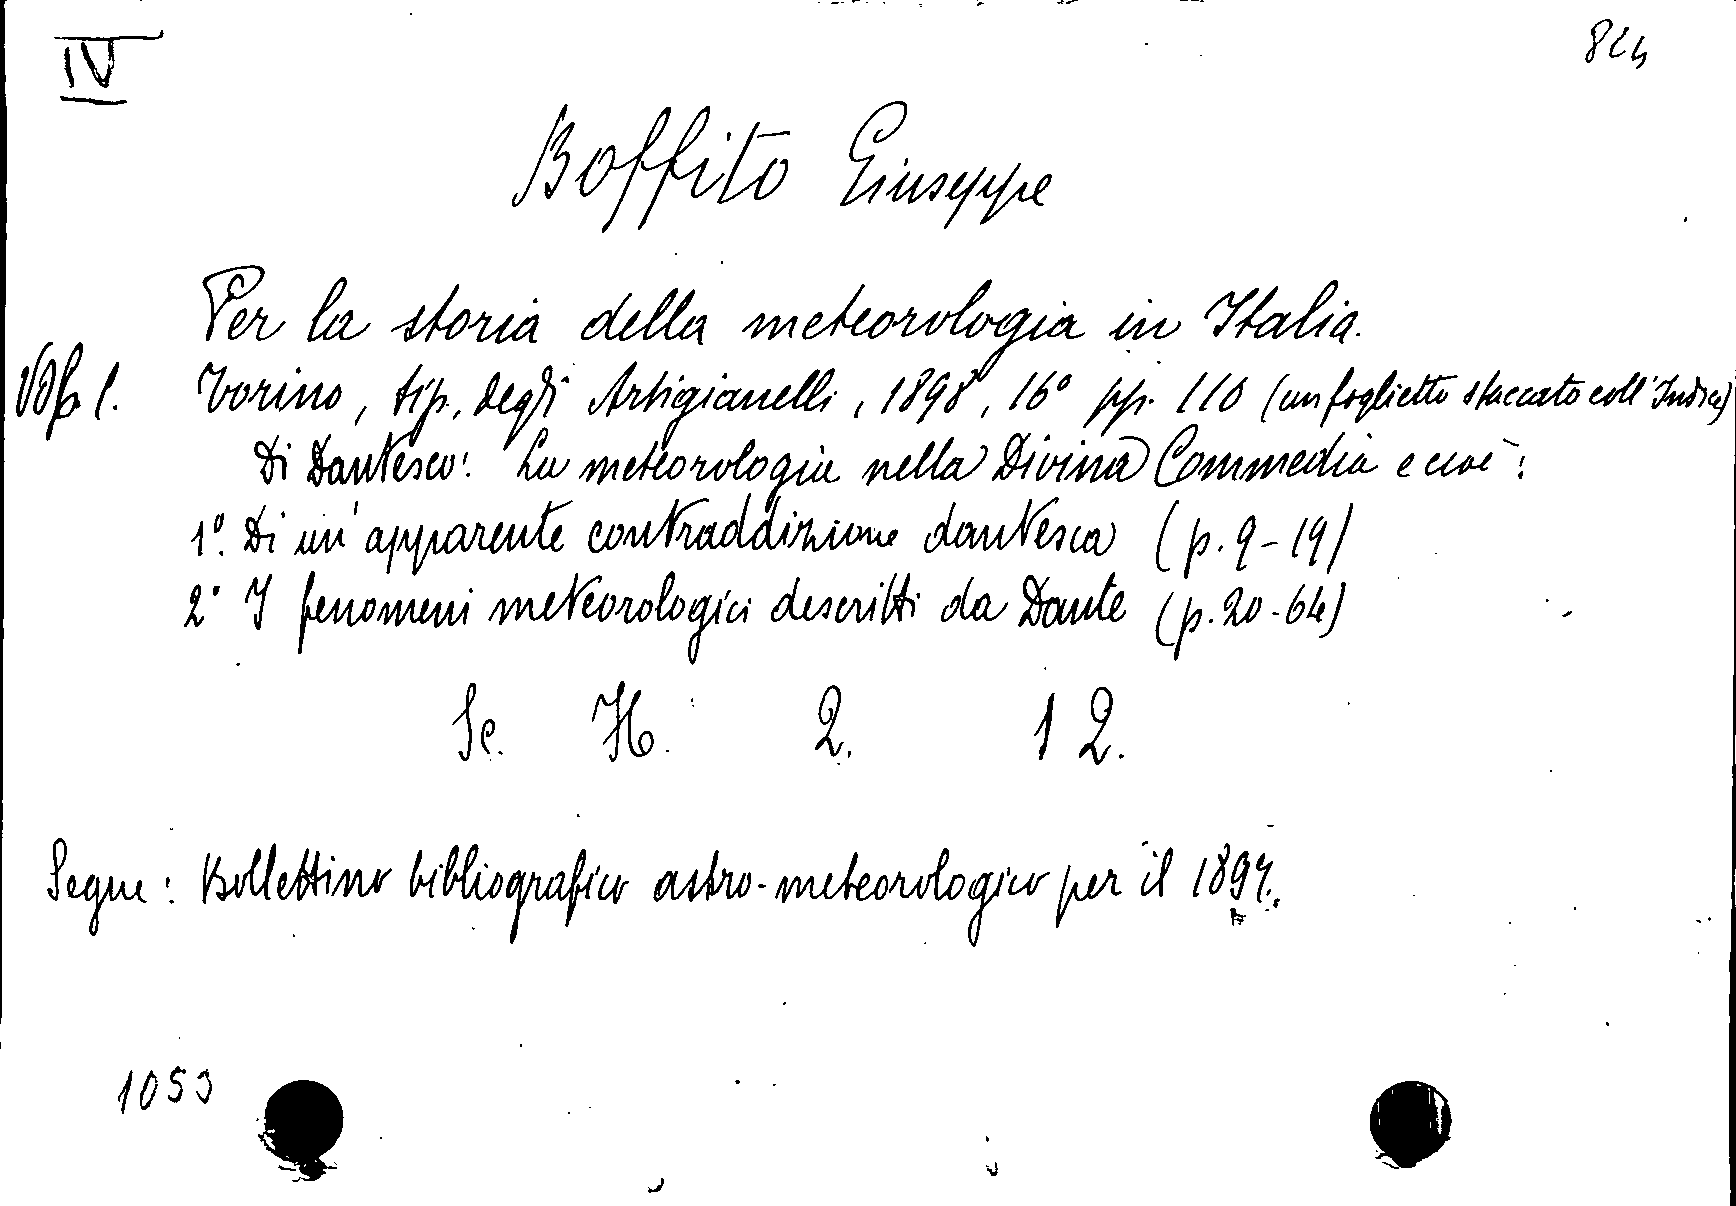 IV
Boffito Giuseppe
Per la storia della meteorologia in Italia.
Vol. 1. Torino, tip. degli Artigianelli, 1898, 16° pp. 110 (un foglietto staccato coll'Indice)
Di Dantesco: La meteorologia nella Divina Commedia e cioè:
1°. Di un'apparente contraddizione dantesca (p. 9-19)
2° I fenomeni meteorologici descritti da Dante (p. 20-64)
Sc. H. 2. 12.
Segue: Bollettino bibliografico astro-meteorologico per il 1897.
1053